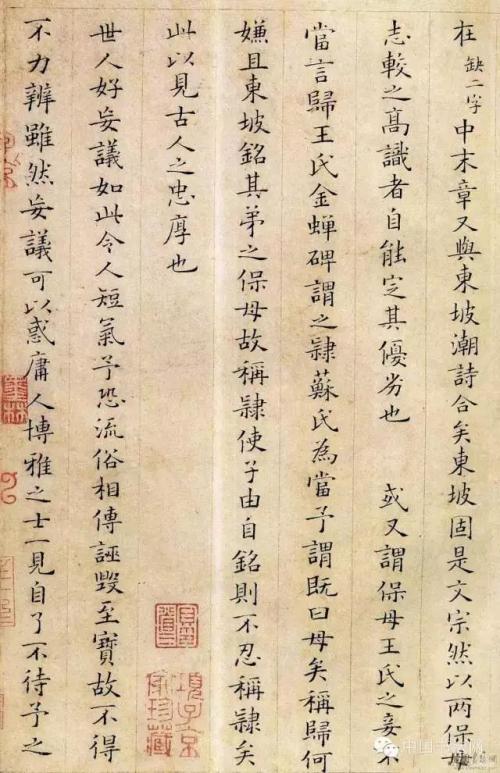 在缺二字中末章又與東坡潮詩合矣東坡固是文宗然以两保母
志較之髙識者自能定其優劣也 或又謂保母王氏之妾不
當言歸王氏金蟬碑謂之隸蘇氏為當予謂既曰母矣稱歸何
嫌且東坡銘其弟之保母故稱隸使子由自銘則不忍稱隸矣
此以見古人之忠厚也
世人好妄議如此令人短氣予恐流俗相傳誣毀至寶故不得
不力辨雖然妄議可以惑庸人博雅之士一見自了不待予之
項子京家珍藏